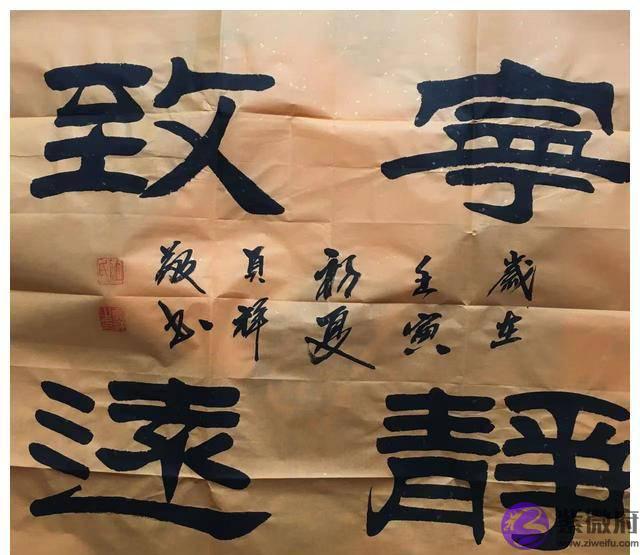 寧靜
致遠
歲在
壬寅
初夏
貞祥
敬書
紫微府
www.ziweifu.com